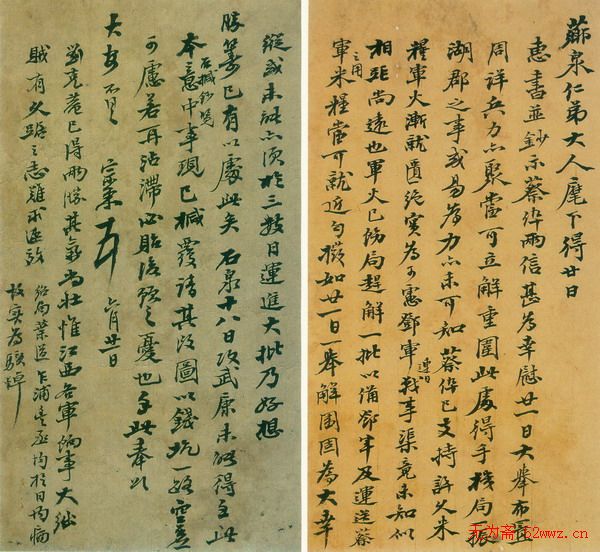 薌泉仁弟大人麾下得廿日
惠書並鈔示蔡倅兩信甚為幸慰廿一日大舉布置
周詳兵力亦聚當可立解重圍此處得手機局振
湖郡之事或易為力亦未可知蔡倅已支持許久米
糧軍火漸就匱絕實為可慮鄧軍連日戰事渠竟未知似
相距尚遠也軍火已飭局趕解一批以備鄧軍及運送蔡
軍之用米糧當可就近勻撥如廿一日一舉解圍固為大幸
縱或未能亦須於三數日運進大批乃好想
勝算已有以處此矣石泉十八日攻武康未能得手此
石緘鈔覽
本意中事現已緘覆請其改圖以錢坑一路空虛
可慮若再沾滯必貽後顧之憂也手此奉
大安不具 宗棠 六月廿一日
劉克菴已得兩勝其氣尚壯惟江西各軍餉事大絀
賊有久踞之志難求速效
紹局葉送乍浦 均於日均病
故實為駭悼
无为斋/52wwz.cn